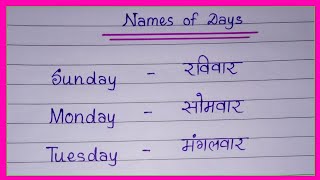 Names of Days
Sunday - रविवार
Monday - सोमवार
Tuesday - मंगलवार